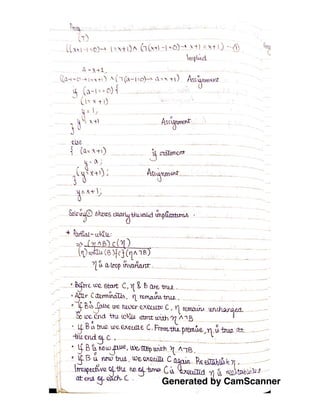 (T)
((x+1-1=0)→ (1=x+1)∧ (¬(x+1-1=0)→ x+1=x+1) -①
Implied
a=x+1
Assignment
if (a-1==0){
(1=x+1)
y=1;
(y=x+1) Assignment
}
else
{ (a=x+1) if statement
y=a;
(y=x+1); Assignment
}
y=x+1;
shows clearly the valid implications.
* Partial-while:
=> (η∧B) c (η)
(η) while (B){c}(η∧¬B)
η is a loop invariant.
• Before we start C, η & B are true.
• After C terminates, η remains true.
• If B is false we never execute C, η remains unchanged.
So we end the while stmt with η∧¬B
• If B is true we execute C. From the premise, η is true at
the end of C.
• If B is now false, we stop with η∧¬B.
• If B is now true, we execute C again. Re-establish η.
Irrespective of the no. of times C is executed η is
at end of each C.
Generated by CamScanner